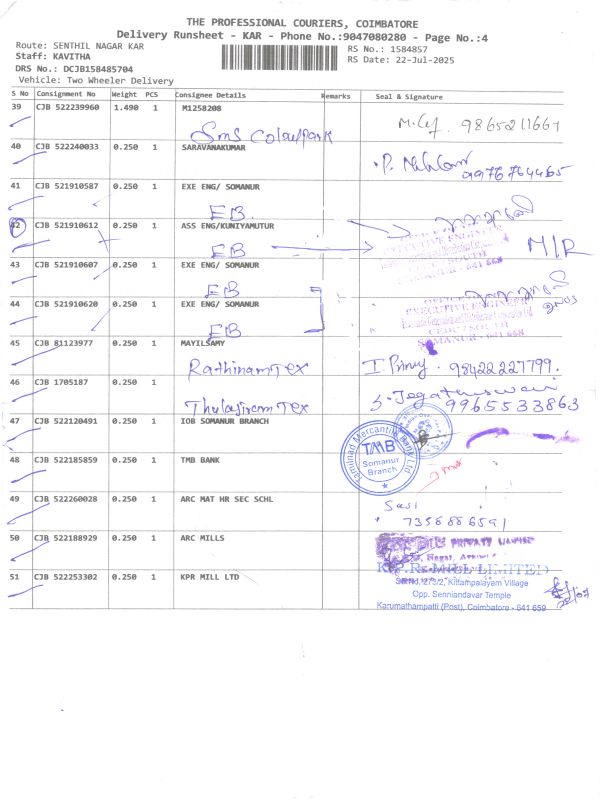 THE PROFESSIONAL COURIERS, COIMBATORE
Delivery Runsheet - KAR - Phone No.:9047080280 - Page No.:4
Route: SENTHIL NAGAR KAR
RS No.: 1584857
Staff: KAVITHA
RS Date: 22-Jul-2025
DRS No.: DCJB158485704
Vehicle: Two Wheeler Delivery
S No Consignment No Weight PCS Consignee Details Remarks Seal & Signature
39 CJB 522239960 1.490 1 M1258208
Sms Colourpark 9865211667
40 CJB 522240033 0.250 1 SARAVANAKUMAR
9976764465
41 CJB 521910587 0.250 1 EXE ENG/ SOMANUR
EB
42 CJB 521910612 0.250 1 ASS ENG/KUNIYAMUTUR
EB EXECUTIVE ENGINEER M/R
43 CJB 521910607 0.250 1 EXE ENG/ SOMANUR
EB
44 CJB 521910620 0.250 1 EXE ENG/ SOMANUR
EB EXECUTIVE ENGINEER
SOMANUR - 641 668
45 CJB 81123977 0.250 1 MAYILSAMY
Rathinam Tex 98422227799.
46 CJB 1705187 0.250 1
Thulasiram Tex 9965533863
47 CJB 522120491 0.250 1 IOB SOMANUR BRANCH
Tamilnad Mercantile Bank Ltd
TMB
Somanur
Branch
48 CJB 522185859 0.250 1 TMB BANK
49 CJB 522260028 0.250 1 ARC MAT HR SEC SCHL
Sasi
7358886591
50 CJB 522188929 0.250 1 ARC MILLS
PRIVATE LIMITED
51 CJB 522253302 0.250 1 KPR MILL LTD
K.P.R. MILL LIMITED
SF.No. 273/2, Kittampalayam Village
Opp. Senniandavar Temple
Karumathampatti (Post), Coimbatore - 641 659